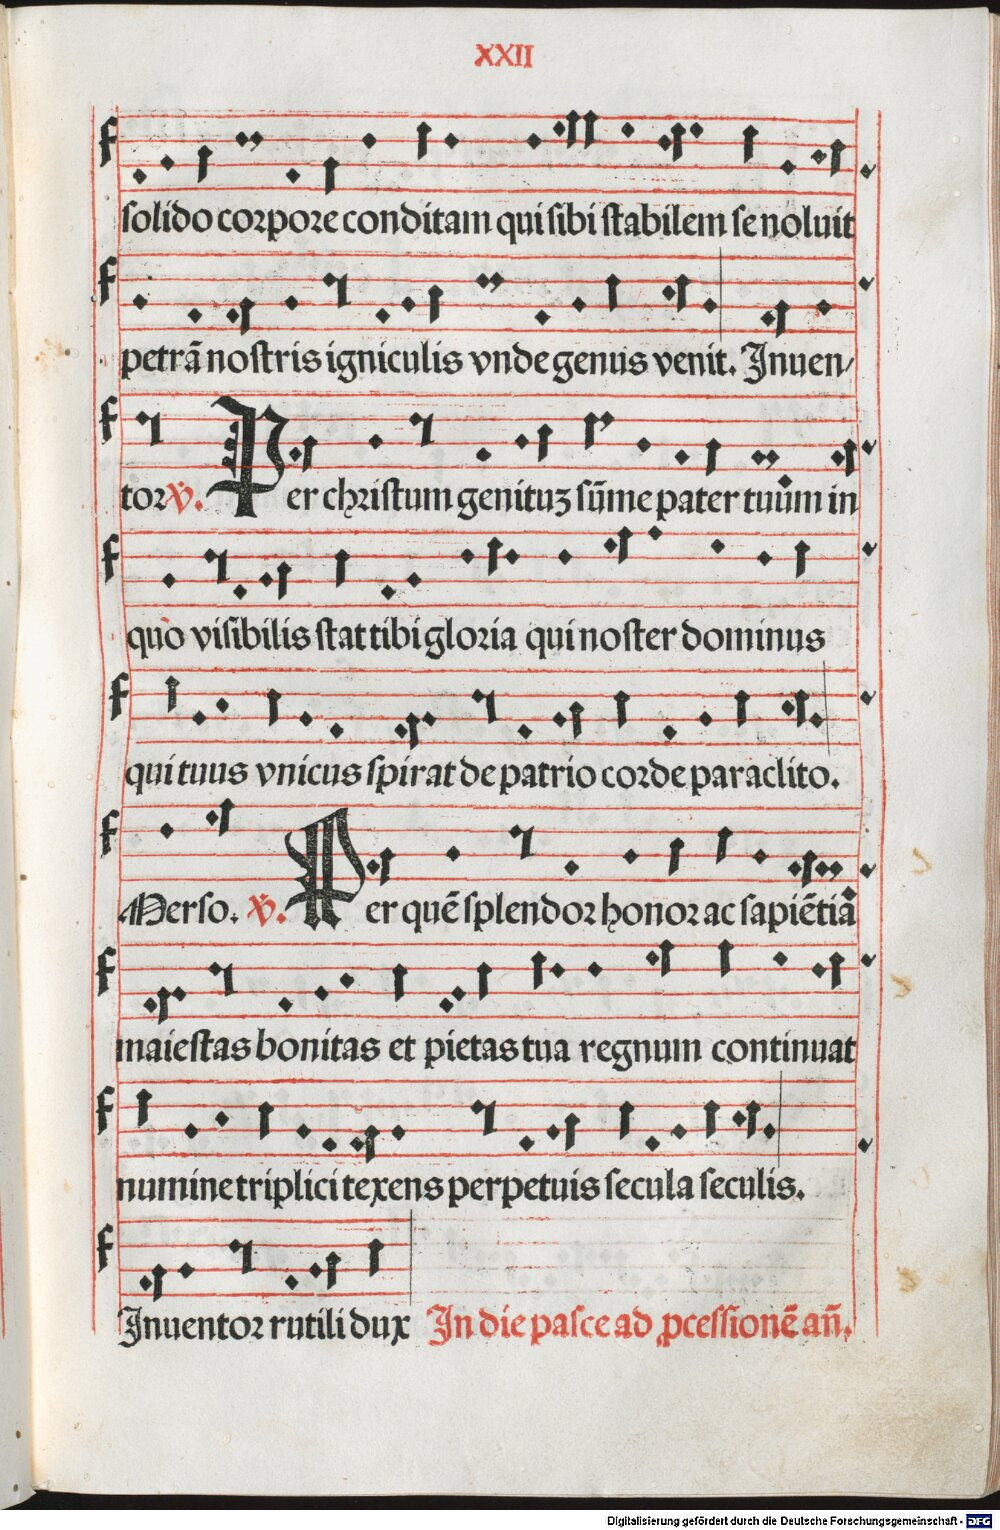 XXII
solido corpore conditam qui sibi stabilem se noluit
petrā nostris igniculis vnde genus venit. Inuen/
tor℣. Per christum genituꝫ sūme pater tuūm in
quo visibilis stat tibi gloria qui noster dominus
qui tuus vnicus spirat de patrio corde paraclito.
Merso. ℣. Per quē splendor honor ac sapiētiā
maiestas bonitas et pietas tua regnum continuat
numine triplici texens perpetuis secula seculis.
Inuentor rutili dux In die pasce ad ꝓcessionē añ.
Digitalisierung gefördert durch die Deutsche Forschungsgemeinschaft - DFG